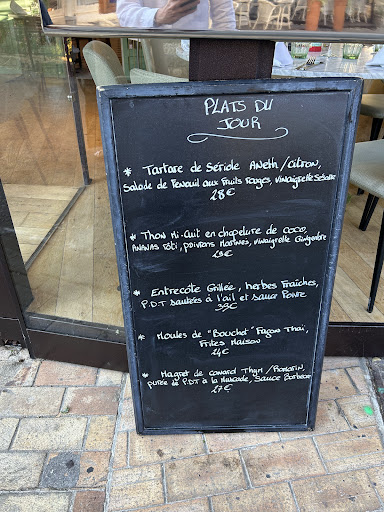 PLATS DU
JOUR
* Tartare de Sériole Aneth / Citron,
Salade de Fenouil aux Fruits Rouges, Vinaigrette Sésame
28€
* Thon Mi-Cuit en chapelure de coco,
Ananas rôti, poivrons marinés, vinaigrette Gingembre
* Entrecôte Grillée, herbes Fraîches,
P.D.T sautées à l'ail et sauce Poivre
* Moules de "Bouchot" Façon Thaï,
Frites Maison
24€
* Magret de canard Thym / Romarin,
purée de P.D.T à la Muscade, Sauce Barbecue
27€